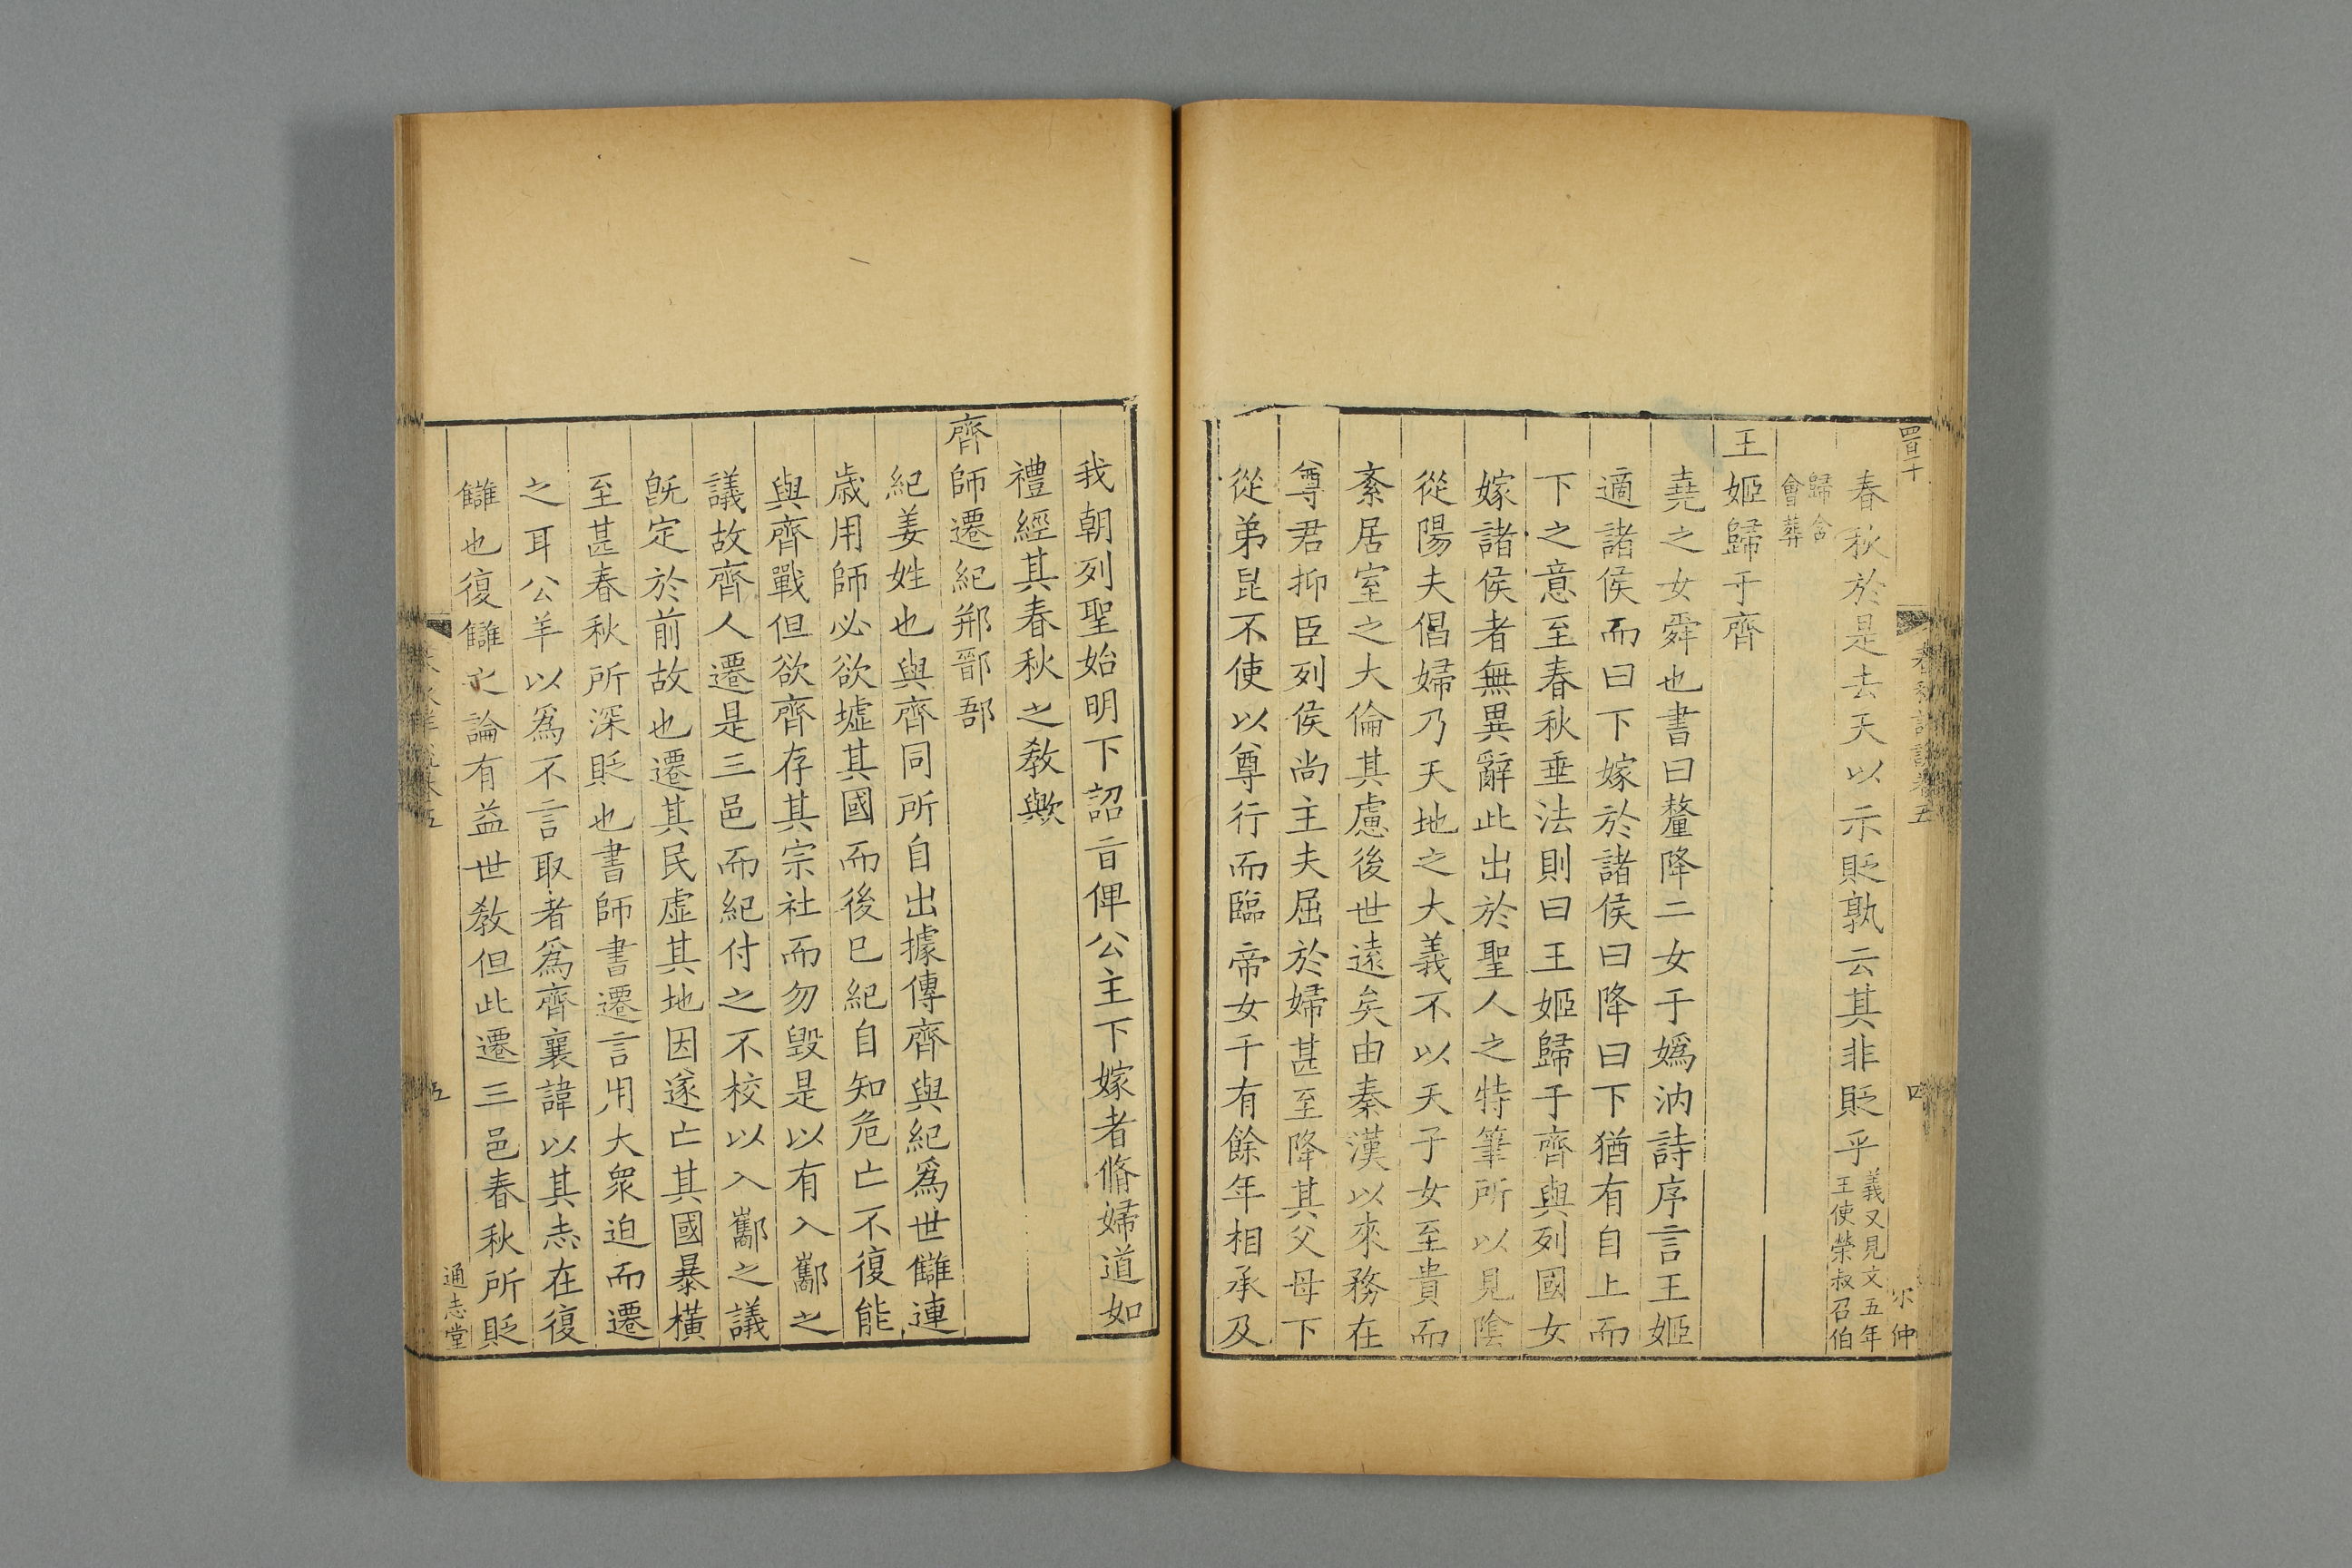 春秋於是去天以示貶孰云其非貶乎義又見文五年王使榮叔召伯
歸含會葬
王姬歸于齊
堯之女舜也書曰釐降二女于嬀汭詩序言王姬
適諸侯而曰下嫁於諸侯曰降曰下猶有自上而
下之意至春秋垂法則曰王姬歸于齊與列國女
嫁諸侯者無異辭此出於聖人之特筆所以見陰
從陽夫倡婦乃天地之大義不以天子女至貴而
紊居室之大倫其慮後世遠矣由秦漢以來務在
尊君抑臣列侯尚主夫屈於婦甚至降其父母下
從弟昆不使以尊行而臨帝女千有餘年相承及
我朝列聖始明下詔旨俾公主下嫁者脩婦道如
禮經其春秋之敎歟
齊師遷紀郱鄑郚
紀姜姓也與齊同所自出據傳齊與紀爲世讎連
歲用師必欲墟其國而後已紀自知危亡不復能
與齊戰但欲齊存其宗社而勿毀是以有入酅之
議故齊人遷是三邑而紀付之不校以入酅之議
旣定於前故也遷其民虛其地因遂亡其國暴橫
至甚春秋所深貶也書師書遷言用大衆迫而遷
之耳公羊以爲不言取者爲齊襄諱以其志在復
讎也復讎之論有益世敎但此遷三邑春秋所貶
通志堂